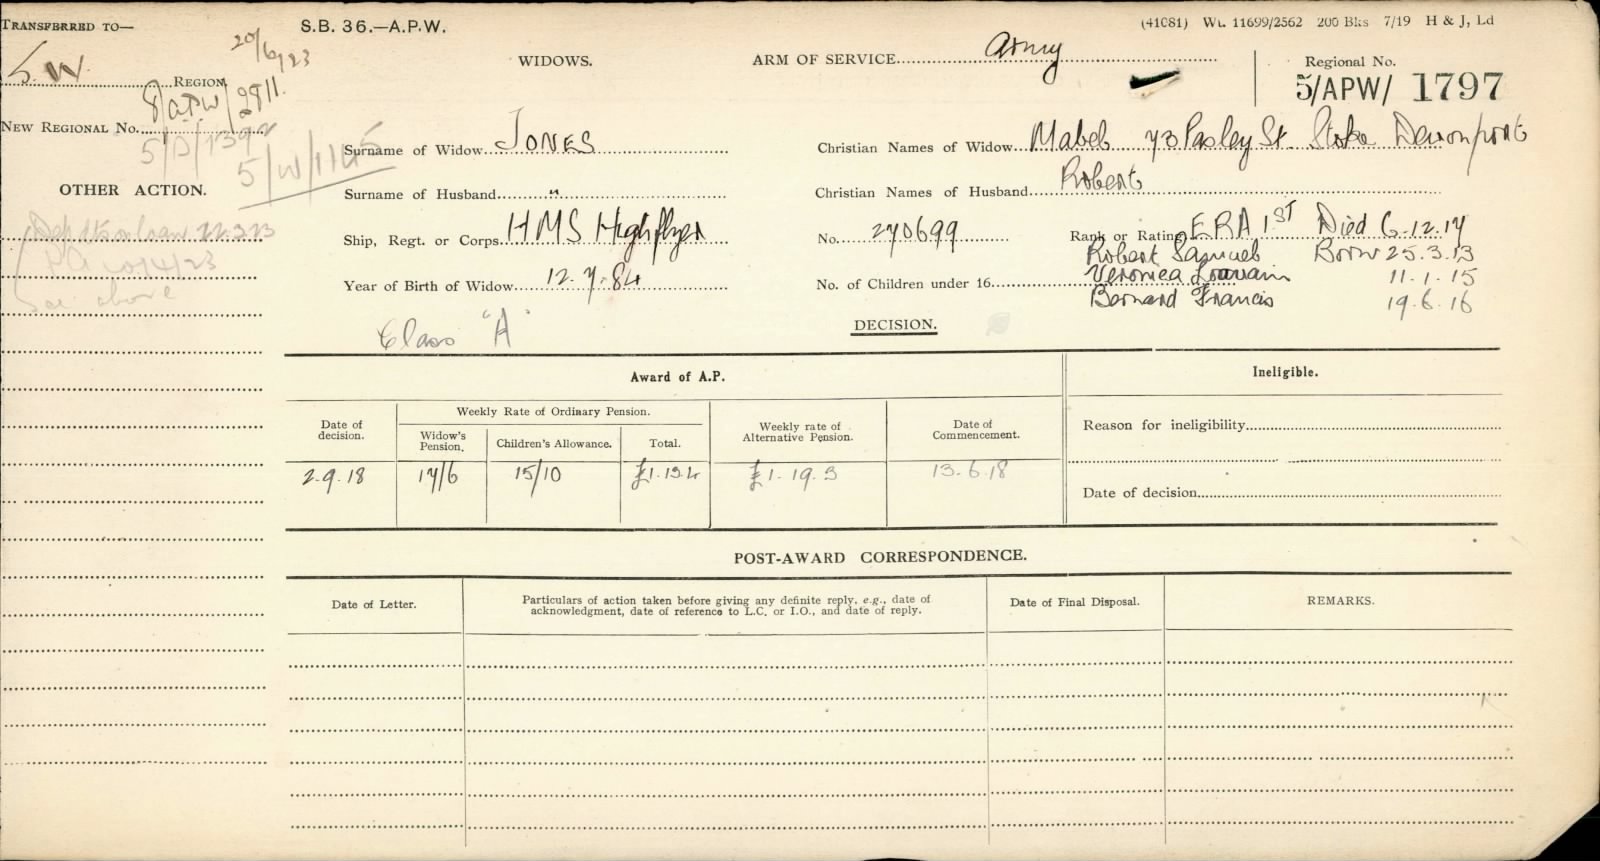 TRANSFERRED TO—
S.W. REGION
20/6/23
8/A.P.W/2811.
NEW REGIONAL No.
5/D/1392
5/W/1145
OTHER ACTION.
See above
S.B. 36.—A.P.W.
(41081) Wt. 11699/2562 200 Bks 7/19 H & J, Ld
WIDOWS.
ARM OF SERVICE Army
Regional No.
5/APW/ 1797
Surname of Widow JONES
Christian Names of Widow Mabel 73 Pasley St. Stoke Devonport
Surname of Husband "
Christian Names of Husband Robert
Ship, Regt. or Corps HMS Highflyer
No. 270699
Rank or Rating E.R.A 1ST Died 6.12.17
Year of Birth of Widow 12.7.84
No. of Children under 16
Robert Samuel Born 25.3.13
Veronica Lorrain 11.1.15
Bernard Francis 19.6.16
Class "A"
DECISION.
Award of A.P.
Ineligible.
Date of decision.
Weekly Rate of Ordinary Pension.
Widow's Pension.
Children's Allowance.
Total.
Weekly rate of Alternative Pension.
Date of Commencement.
2.9.18 17/6 15/10 £1.13.4 £1.19.3 13.6.18
Reason for ineligibility
Date of decision
POST-AWARD CORRESPONDENCE.
Date of Letter.
Particulars of action taken before giving any definite reply, e.g., date of
acknowledgment, date of reference to L.C. or I.O., and date of reply.
Date of Final Disposal.
REMARKS.